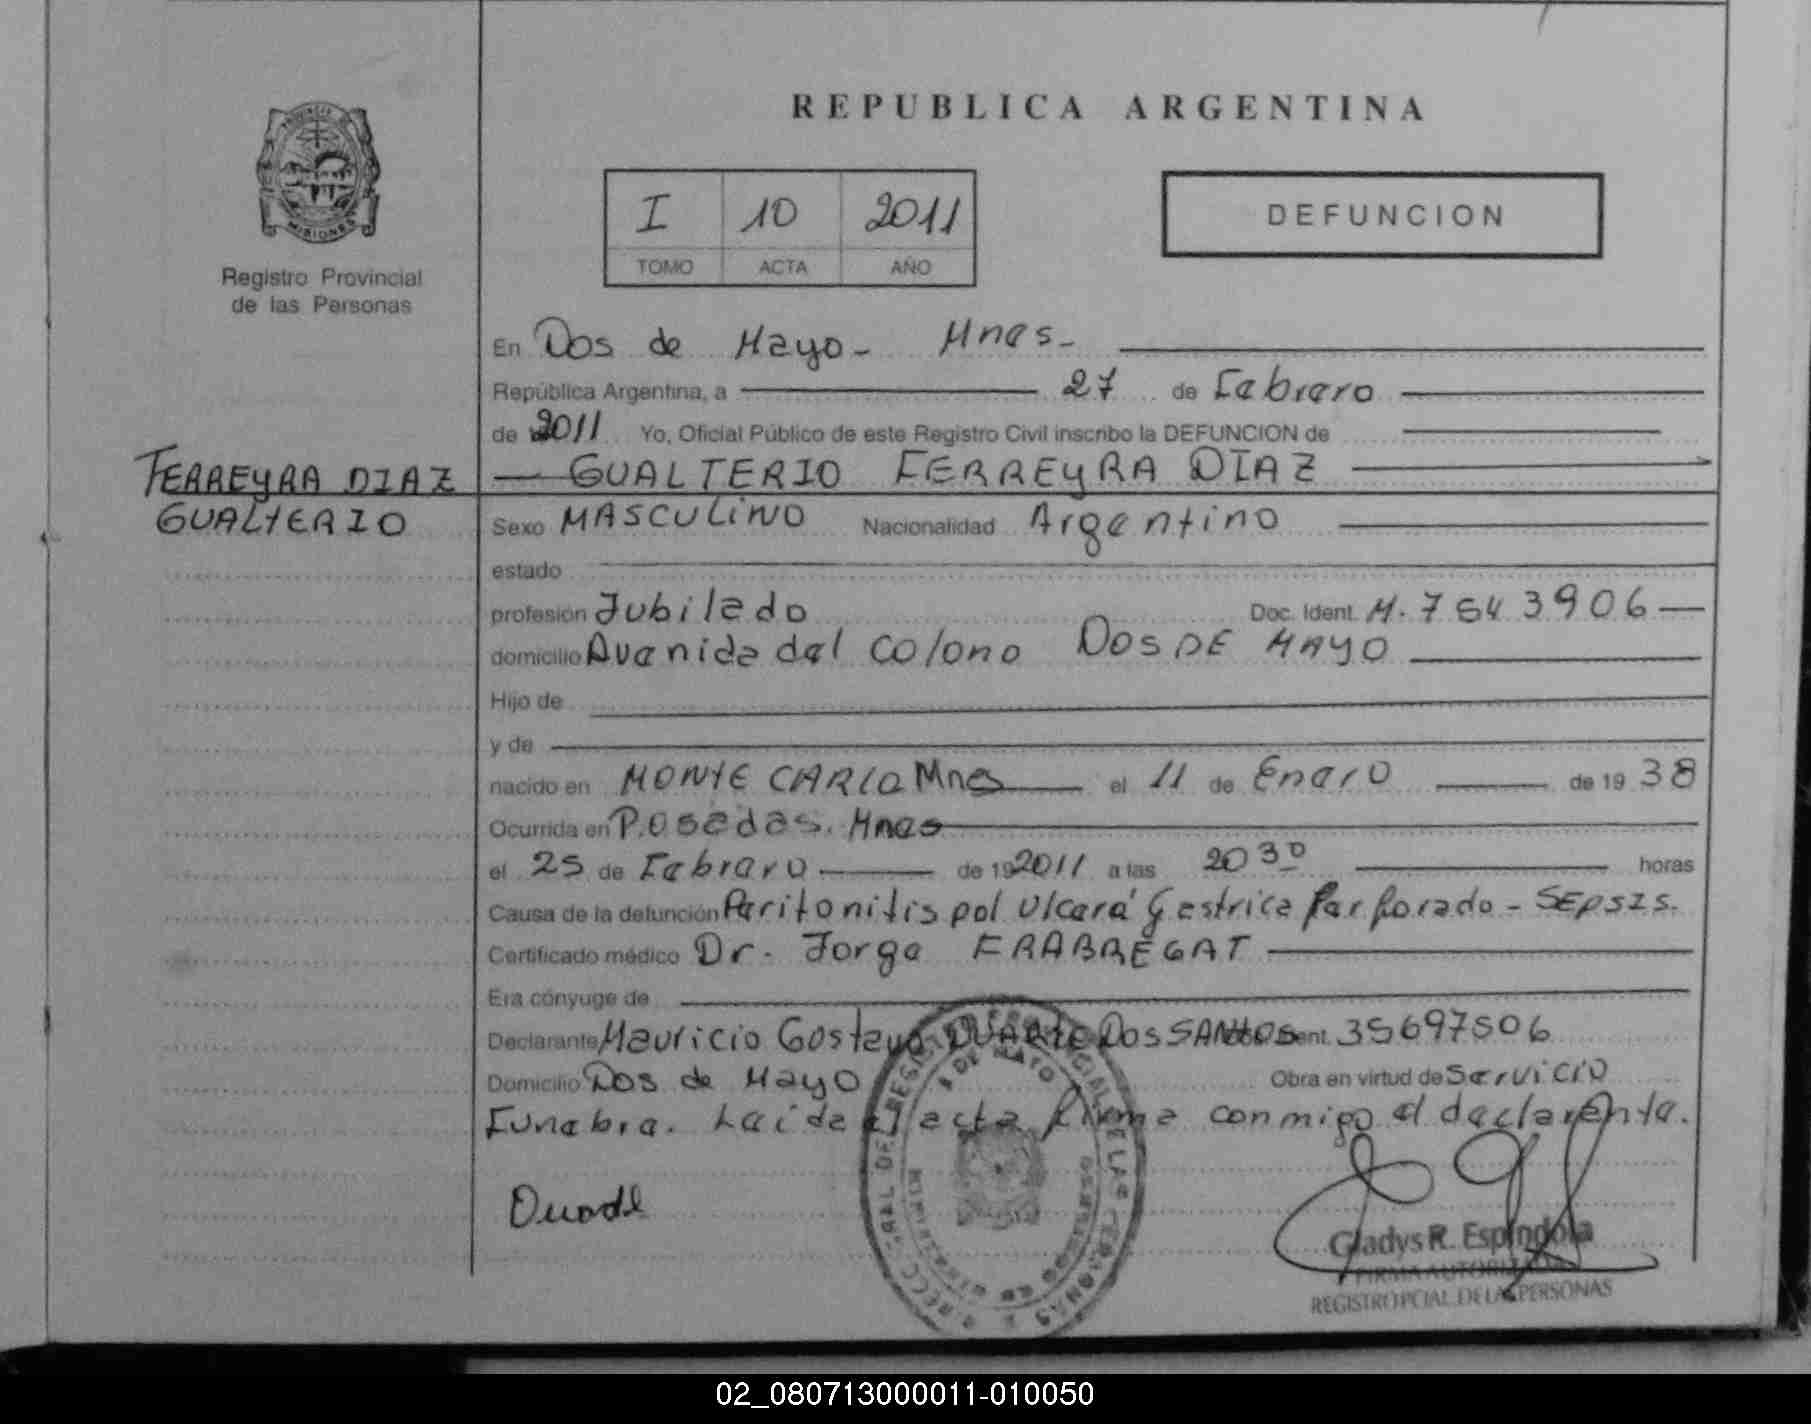 REPUBLICA ARGENTINA
PROVINCIA DE
MISIONES
Registro Provincial
de las Personas
I 10 2011
TOMO ACTA AÑO
DEFUNCION
En Dos de Mayo - Mnes -
República Argentina, a 27 de Febrero
de 2011 Yo, Oficial Público de este Registro Civil inscribo la DEFUNCION de
FERREYRA DIAZ
GUALTERIO
GUALTERIO FERREYRA DIAZ
Sexo MASCULINO Nacionalidad Argentino
estado
profesión Jubilado Doc. Ident. M. 7543906
domicilio Avenida del Colono DOS DE MAYO
Hijo de
y de
nacido en MONTE CARLO Mnes el 11 de Enero de 1938
Ocurrida en Posadas. Mnes
el 25 de Febrero de 19 2011 a las 20 30 horas
Causa de la defunción Peritonitis pol Ulcera Gastrica Perforado - SEPSIS.
Certificado médico Dr. Jorge FRABREGAT
Era cónyuge de
Declarante Mauricio Gostavo DUARTE DOS SANTOS Ident. 35697506
Domicilio Dos de Mayo Obra en virtud de Servicio
Funebre. Leida el acta firma conmigo el declarante.
Gladys R. Espindola
FIRMA AUTORIZADA
REGISTRO PCIAL. DE LAS PERSONAS
02_080713000011-010050